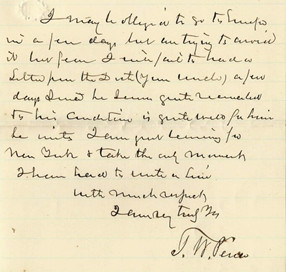 I may be obliged to go to Europe
in a few days but am trying to avoid
it but fear I will fail to had a
letter from the Dist (Your uncle) a few
days since he seems quite reconciled
to his condition is quite well for him
he writes I am just leaving for
New York & take the only moment
I have had to write a line
with much respect
I am very truly Yrs
T. W. Peirce